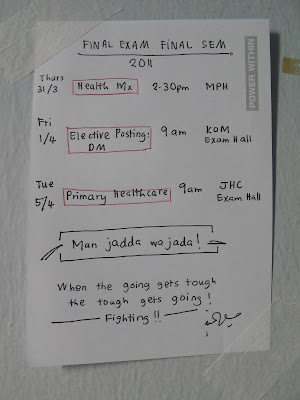 FINAL EXAM FINAL SEM.
2011
POWER WITHIN
Thurs
31/3 Health Mx 2.30pm MPH
Fri
1/4 Elective Posting: 9am KOM
DM Exam Hall
Tue
5/4 Primary Healthcare 9am JHC
Exam Hall
Man jadda wajada!
When the going gets tough
the tough gets going!
Fighting!!